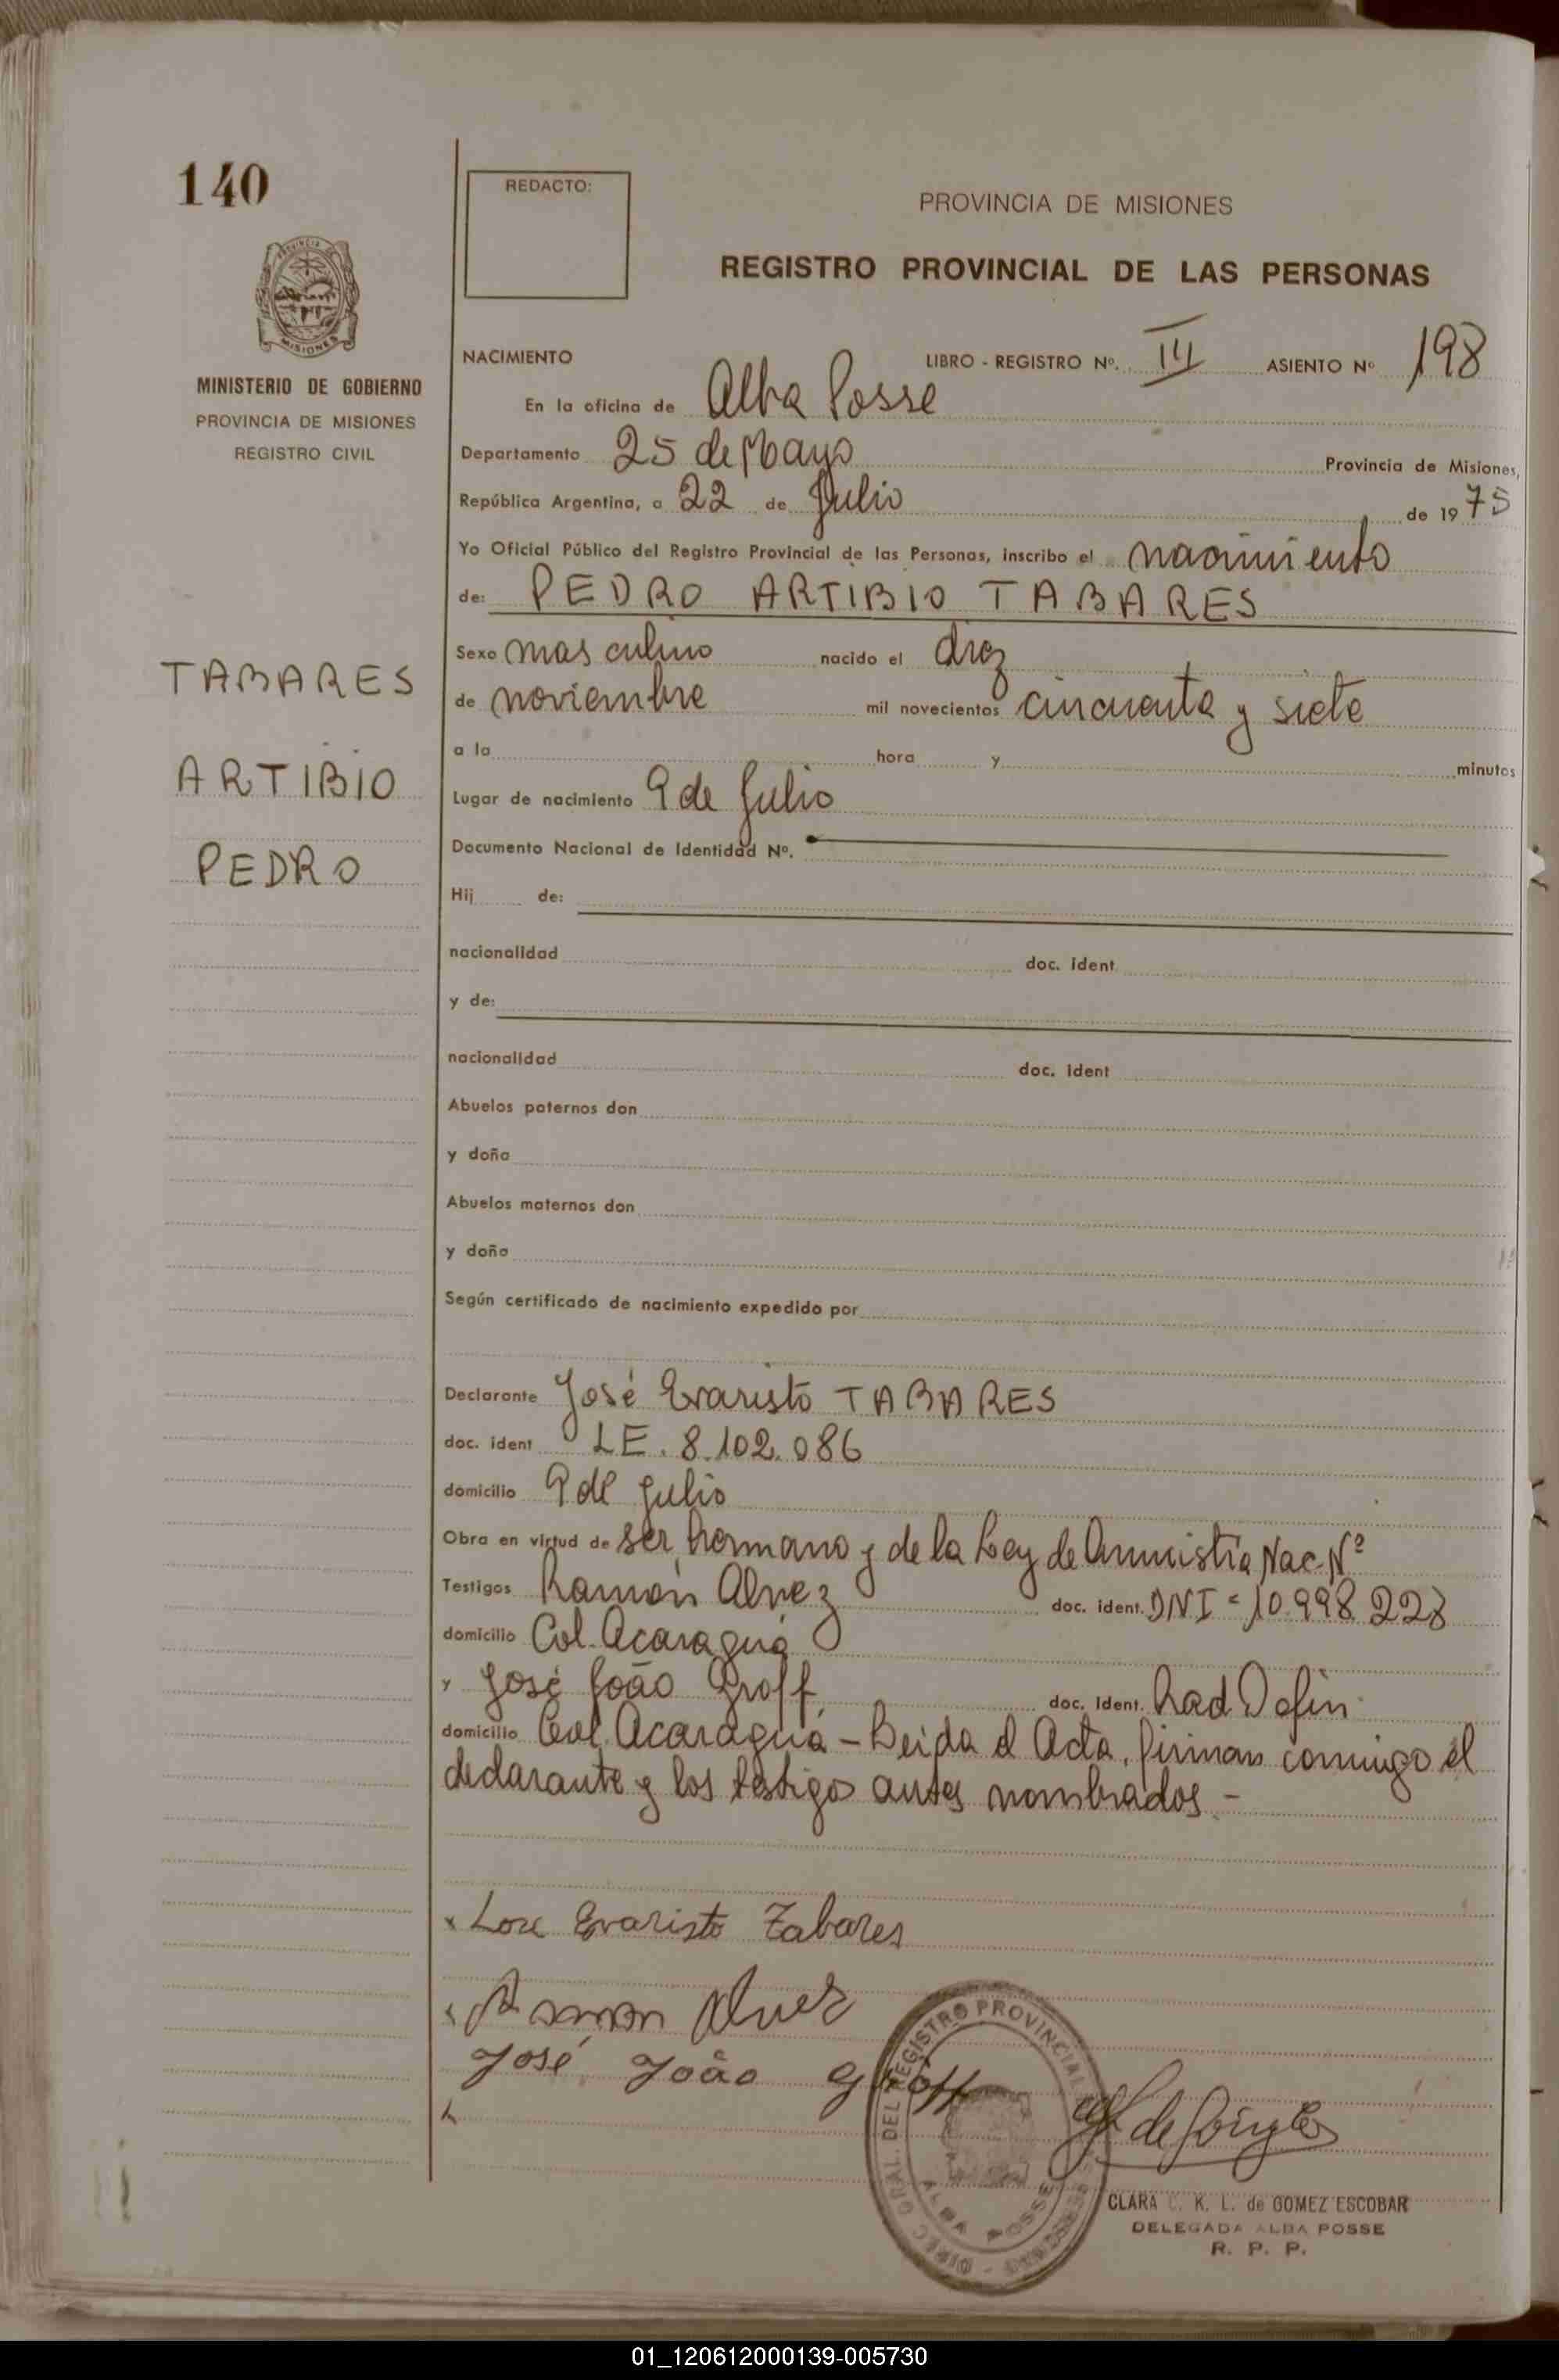 140
REDACTO:
PROVINCIA DE MISIONES
REGISTRO PROVINCIAL DE LAS PERSONAS
MINISTERIO DE GOBIERNO
PROVINCIA DE MISIONES
REGISTRO CIVIL
NACIMIENTO LIBRO - REGISTRO Nº. III ASIENTO Nº 198
En la oficina de Alba Posse
Departamento 25 de Mayo Provincia de Misiones,
República Argentina, a 22 de Julio de 1975
Yo Oficial Público del Registro Provincial de las Personas, inscribo el nacimiento
de: PEDRO ARTIBIO TABARES
TABARES
ARTIBIO
PEDRO
Sexo masculino nacido el diez
de noviembre mil novecientos cincuenta y siete
a la hora y minutos
Lugar de nacimiento 9 de Julio
Documento Nacional de Identidad Nº.
Hij de:
nacionalidad doc. ident
y de:
nacionalidad doc. ident
Abuelos paternos don
y doña
Abuelos maternos don
y doña
Según certificado de nacimiento expedido por
Declarante José Evaristo TABARES
doc. ident LE. 8.102.086
domicilio 9 de Julio
Obra en virtud de ser hermano y de la Ley de Amnistía Nac. Nº
Testigos Ramón Alvez doc. ident. DNI = 10.998.228
domicilio Col. Acaraguá
y José João Groff doc. ident.
domicilio Col. Acaraguá - Leida el Acta, firman conmigo el
declarante y los testigos antes nombrados -
x Jose Evaristo Tabares
x Ramon Alvez
José João Groff
DIREC. GRAL. DEL REGISTRO PROVINCIAL
ALBA POSSE
CLARA C. K. L. de GOMEZ ESCOBAR
DELEGADA ALBA POSSE
R. P. P.
01_120612000139-005730